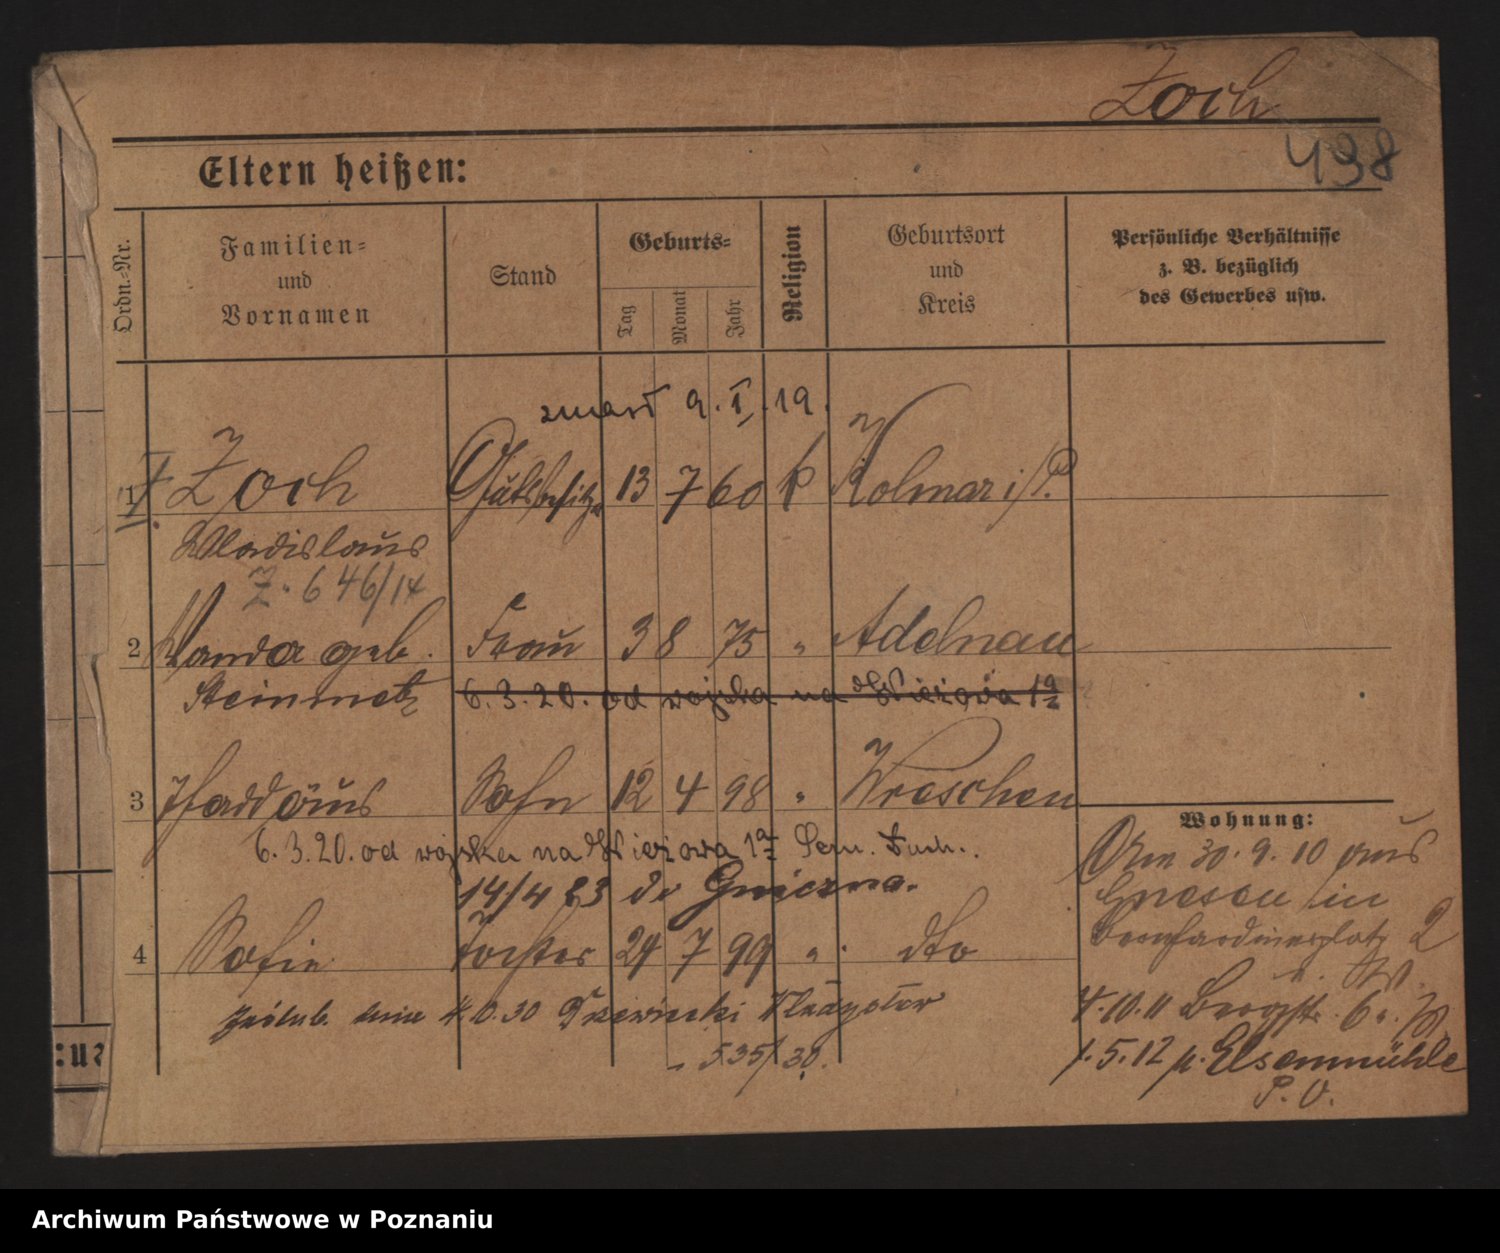 Zoch
498
Eltern heißen:
Ordn.-Nr.
Familien=
und
Vornamen
Stand
Geburts=
Tag
Monat
Jahr
Religion
Geburtsort
und
Kreis
Persönliche Verhältnisse
z. B. bezüglich
des Gewerbes usw.
zmarł 9. I. 19.
1 Zoch Gutsbesitzer 13 7 60 k Kolmar i/P.
Wladislaus
Z. 646/14
2 Wanda geb. Frau 3 8 75 " Adelnau
Steinmetz 6. 3. 20. od wojska na Wieżowa 1a
3 Thaddäus Sohn 12 4 98 " Wreschen
6. 3. 20. od wojska na Wieżowa 1a
14/4 23 do Gniezna.
4 Sofie Tochter 24 7 99 " dto
dnia
535/30.
Wohnung:
Am 30. 9. 10 aus
Gnesen in
Bernhardinerplatz 2
4. 10. 11 Bergstr. 6
1. 5. 12 n. Elsenmühle
P. O.
Archiwum Państwowe w Poznaniu